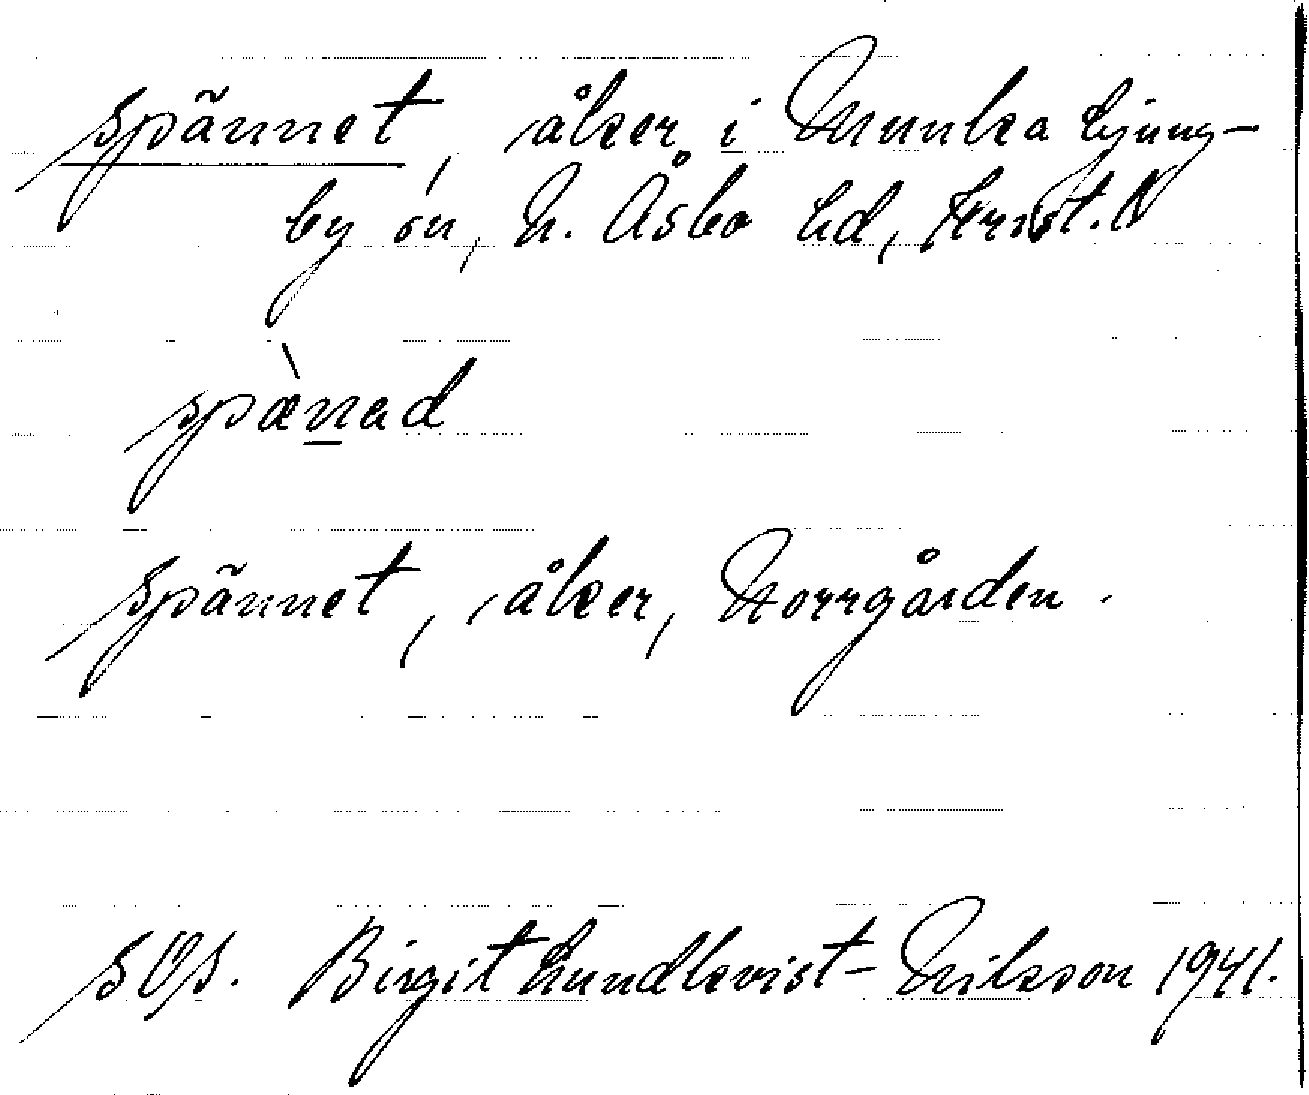 Spännet, åker i Munka Ljung-
by sn, N. Åsbo hd, Krist. l
spæ̀n̲ad
Spännet, åker, Norrgården.
Birgit Lundkvist-Nilsson 1941.